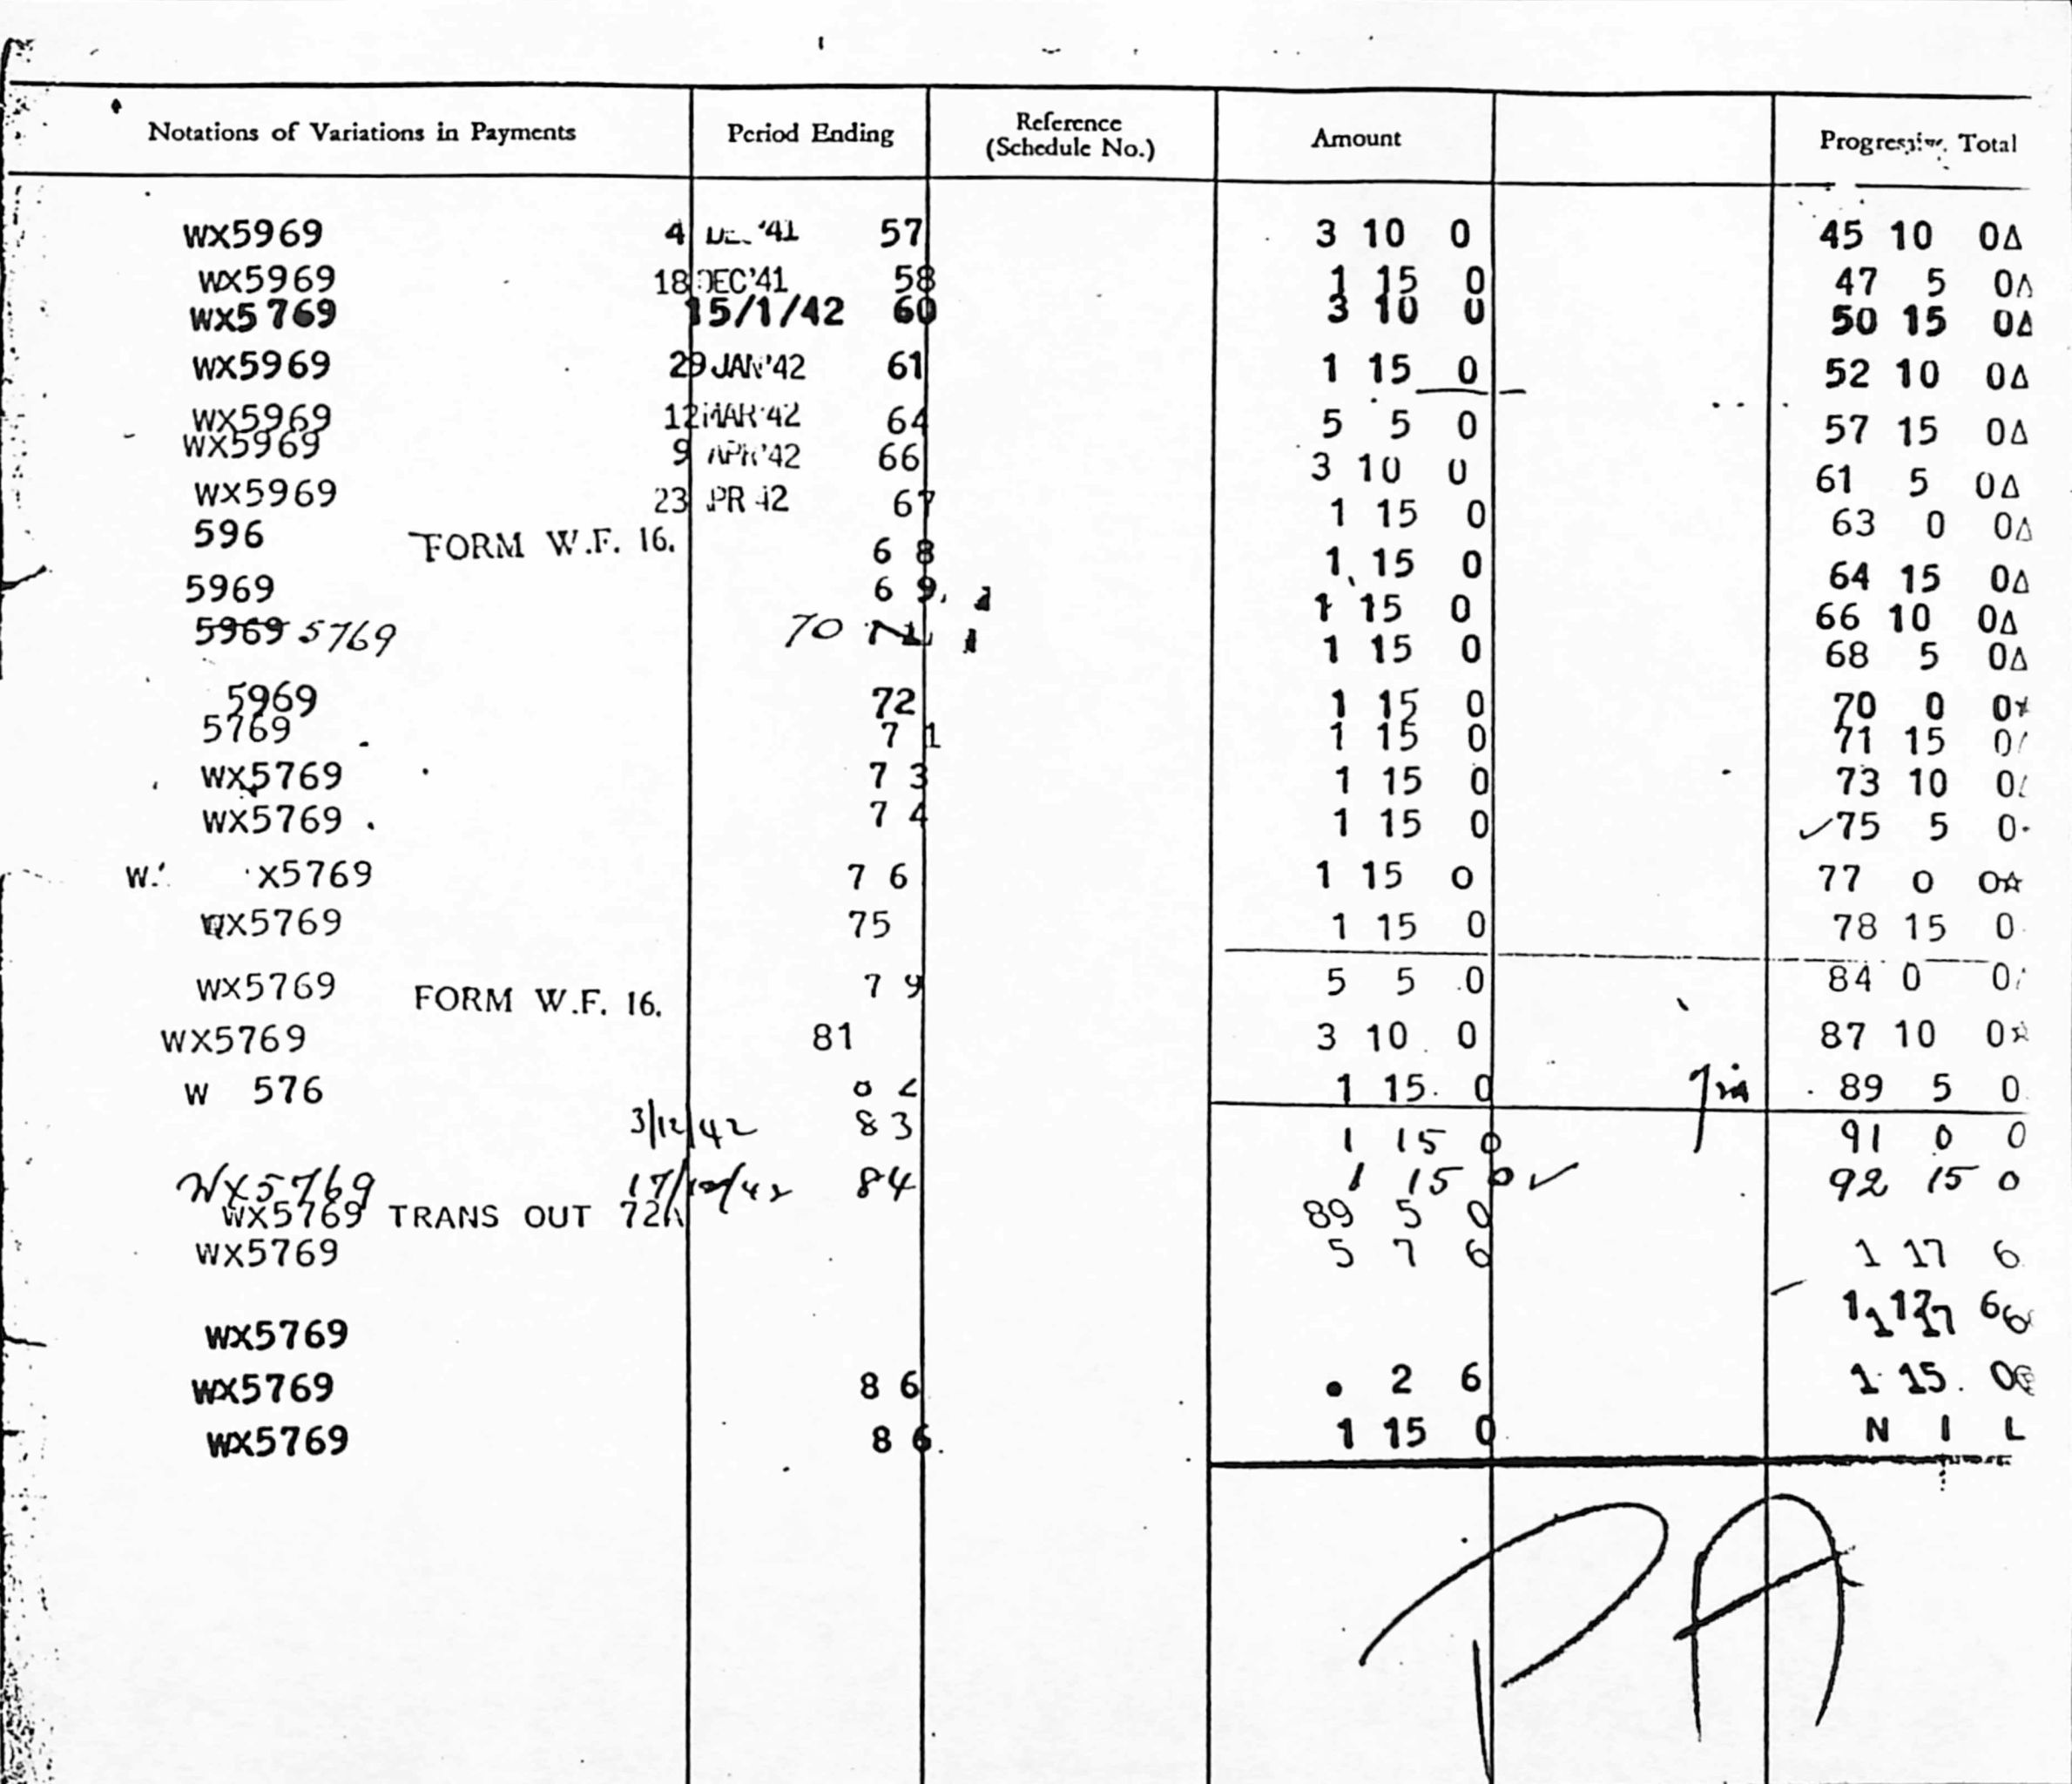 Notations of Variations in Payments Period Ending Reference (Schedule No.) Amount Progressive Total
WX5969 4 DEC '41 57 3 10 0 45 10 0Δ
WX5969 18 DEC'41 58 1 15 0 47 5 0Δ
WX5769 15/1/42 60 3 10 0 50 15 0Δ
WX5969 29 JAN'42 61 1 15 0 52 10 0Δ
WX5969 12 MAR'42 64 5 5 0 57 15 0Δ
WX5969 9 APR'42 66 3 10 0 61 5 0Δ
WX5969 23 PR 42 67 1 15 0 63 0 0Δ
596 FORM W.F. 16. 6 8 1 15 0 64 15 0Δ
5969 6 9 1 15 0 66 10 0Δ
5969 5769 70 71 1 15 0 68 5 0Δ
5969 72 1 15 0 70 0 0*
5769 7 1 1 15 0 71 15 0
WX5769 7 3 1 15 0 73 10 0
WX5769 . 7 4 1 15 0 ✓75 5 0
W. X5769 7 6 1 15 0 77 0 0☆
WX5769 75 1 15 0 78 15 0
WX5769 FORM W.F. 16. 7 9 5 5 0 84 0 0
WX5769 81 3 10 0 87 10 0☆
W 576 8 2 1 15 0 89 5 0
3/12/42 83 1 15 0 91 0 0
WX5769 17/12/42 84 1 15 0 ✓ 92 15 0
WX5769 TRANS OUT 72A 89 5 0
WX5769 5 7 6 1 17 6
WX5769 1 17 6
WX5769 8 6 . 2 6 1 15 0
WX5769 8 6 1 15 0 N I L
PA